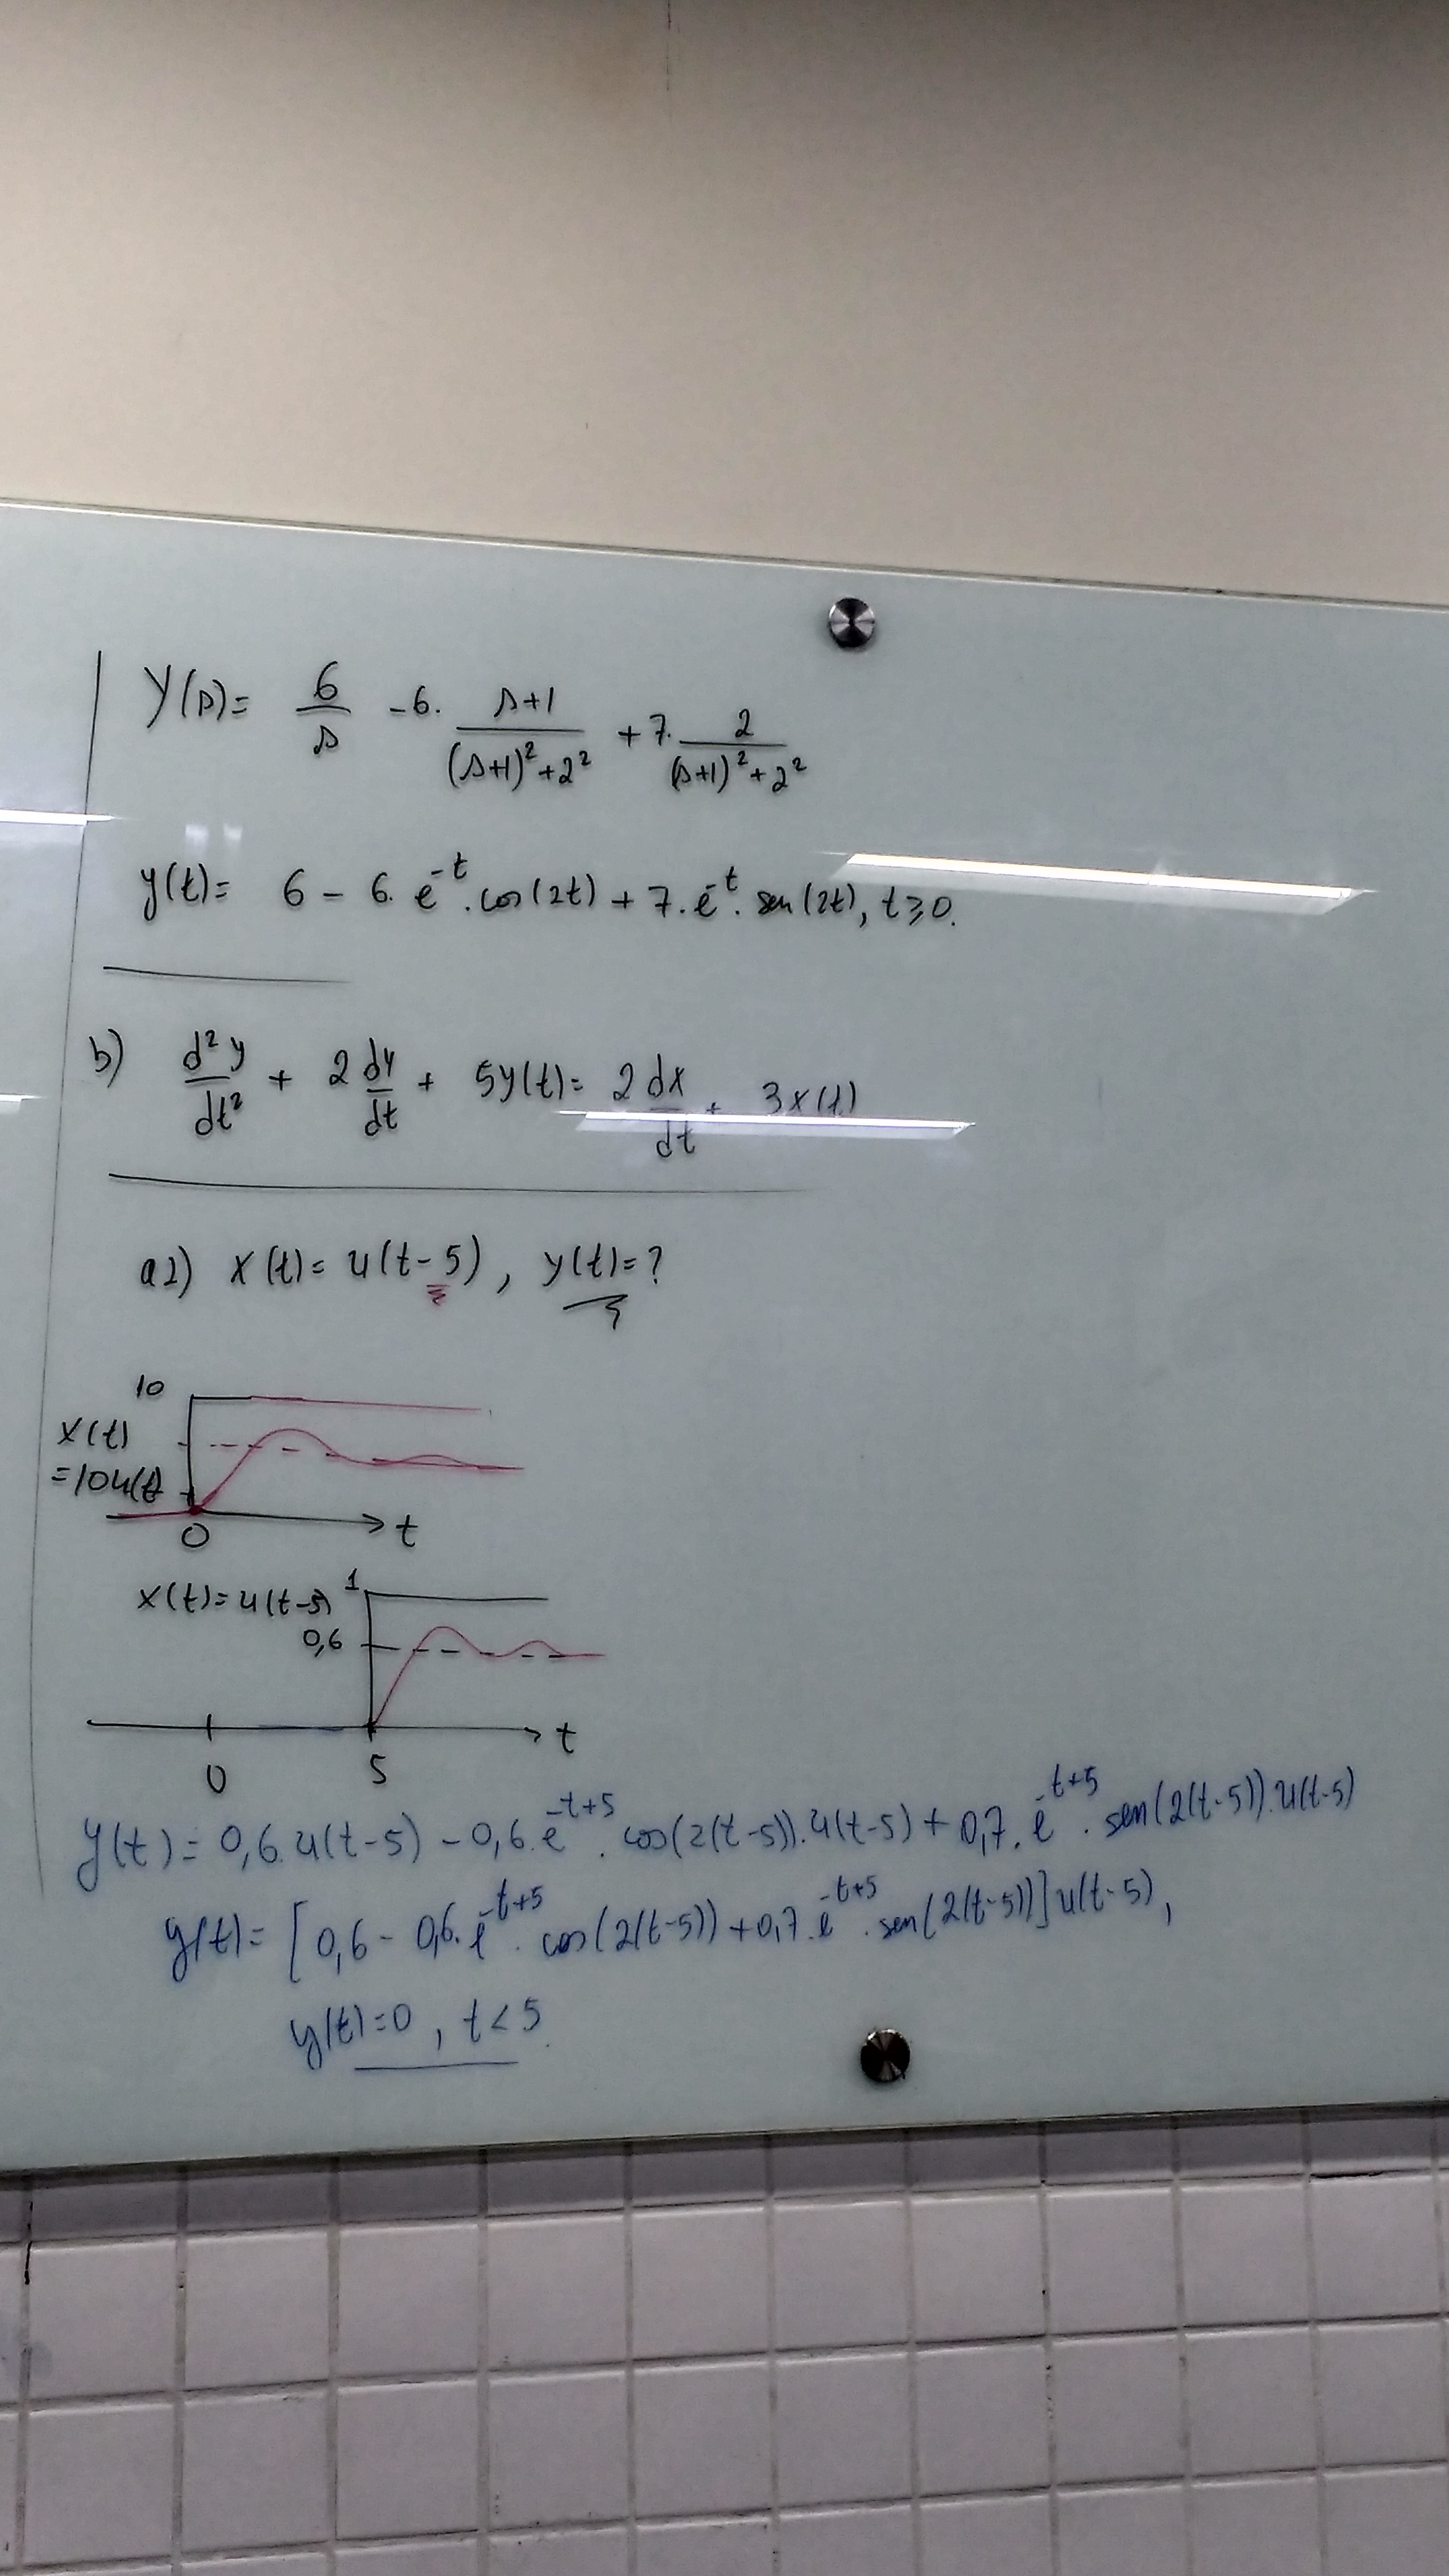 Y(s) = 6/s - 6. (s+1)/((s+1)²+2²) + 7. 2/((s+1)²+2²)
y(t) = 6 - 6. e^-t . cos(2t) + 7. e^-t . sen(2t), t ≥ 0.
b) d²y/dt² + 2 dy/dt + 5y(t) = 2 dx/dt + 3x(t)
a2) x(t) = u(t-5), y(t) = ?
10
x(t)
=10u(t)
0 t
x(t) = u(t-5) 1
0,6
t
0 5
y(t) = 0,6.u(t-5) - 0,6.e^-t+5 . cos(2(t-5)).u(t-5) + 0,7. e^-t+5 . sen(2(t-5)).u(t-5)
y(t) = [0,6 - 0,6. e^-t+5 . cos(2(t-5)) + 0,7. e^-t+5 . sen(2(t-5))] u(t-5),
y(t) = 0 , t < 5.